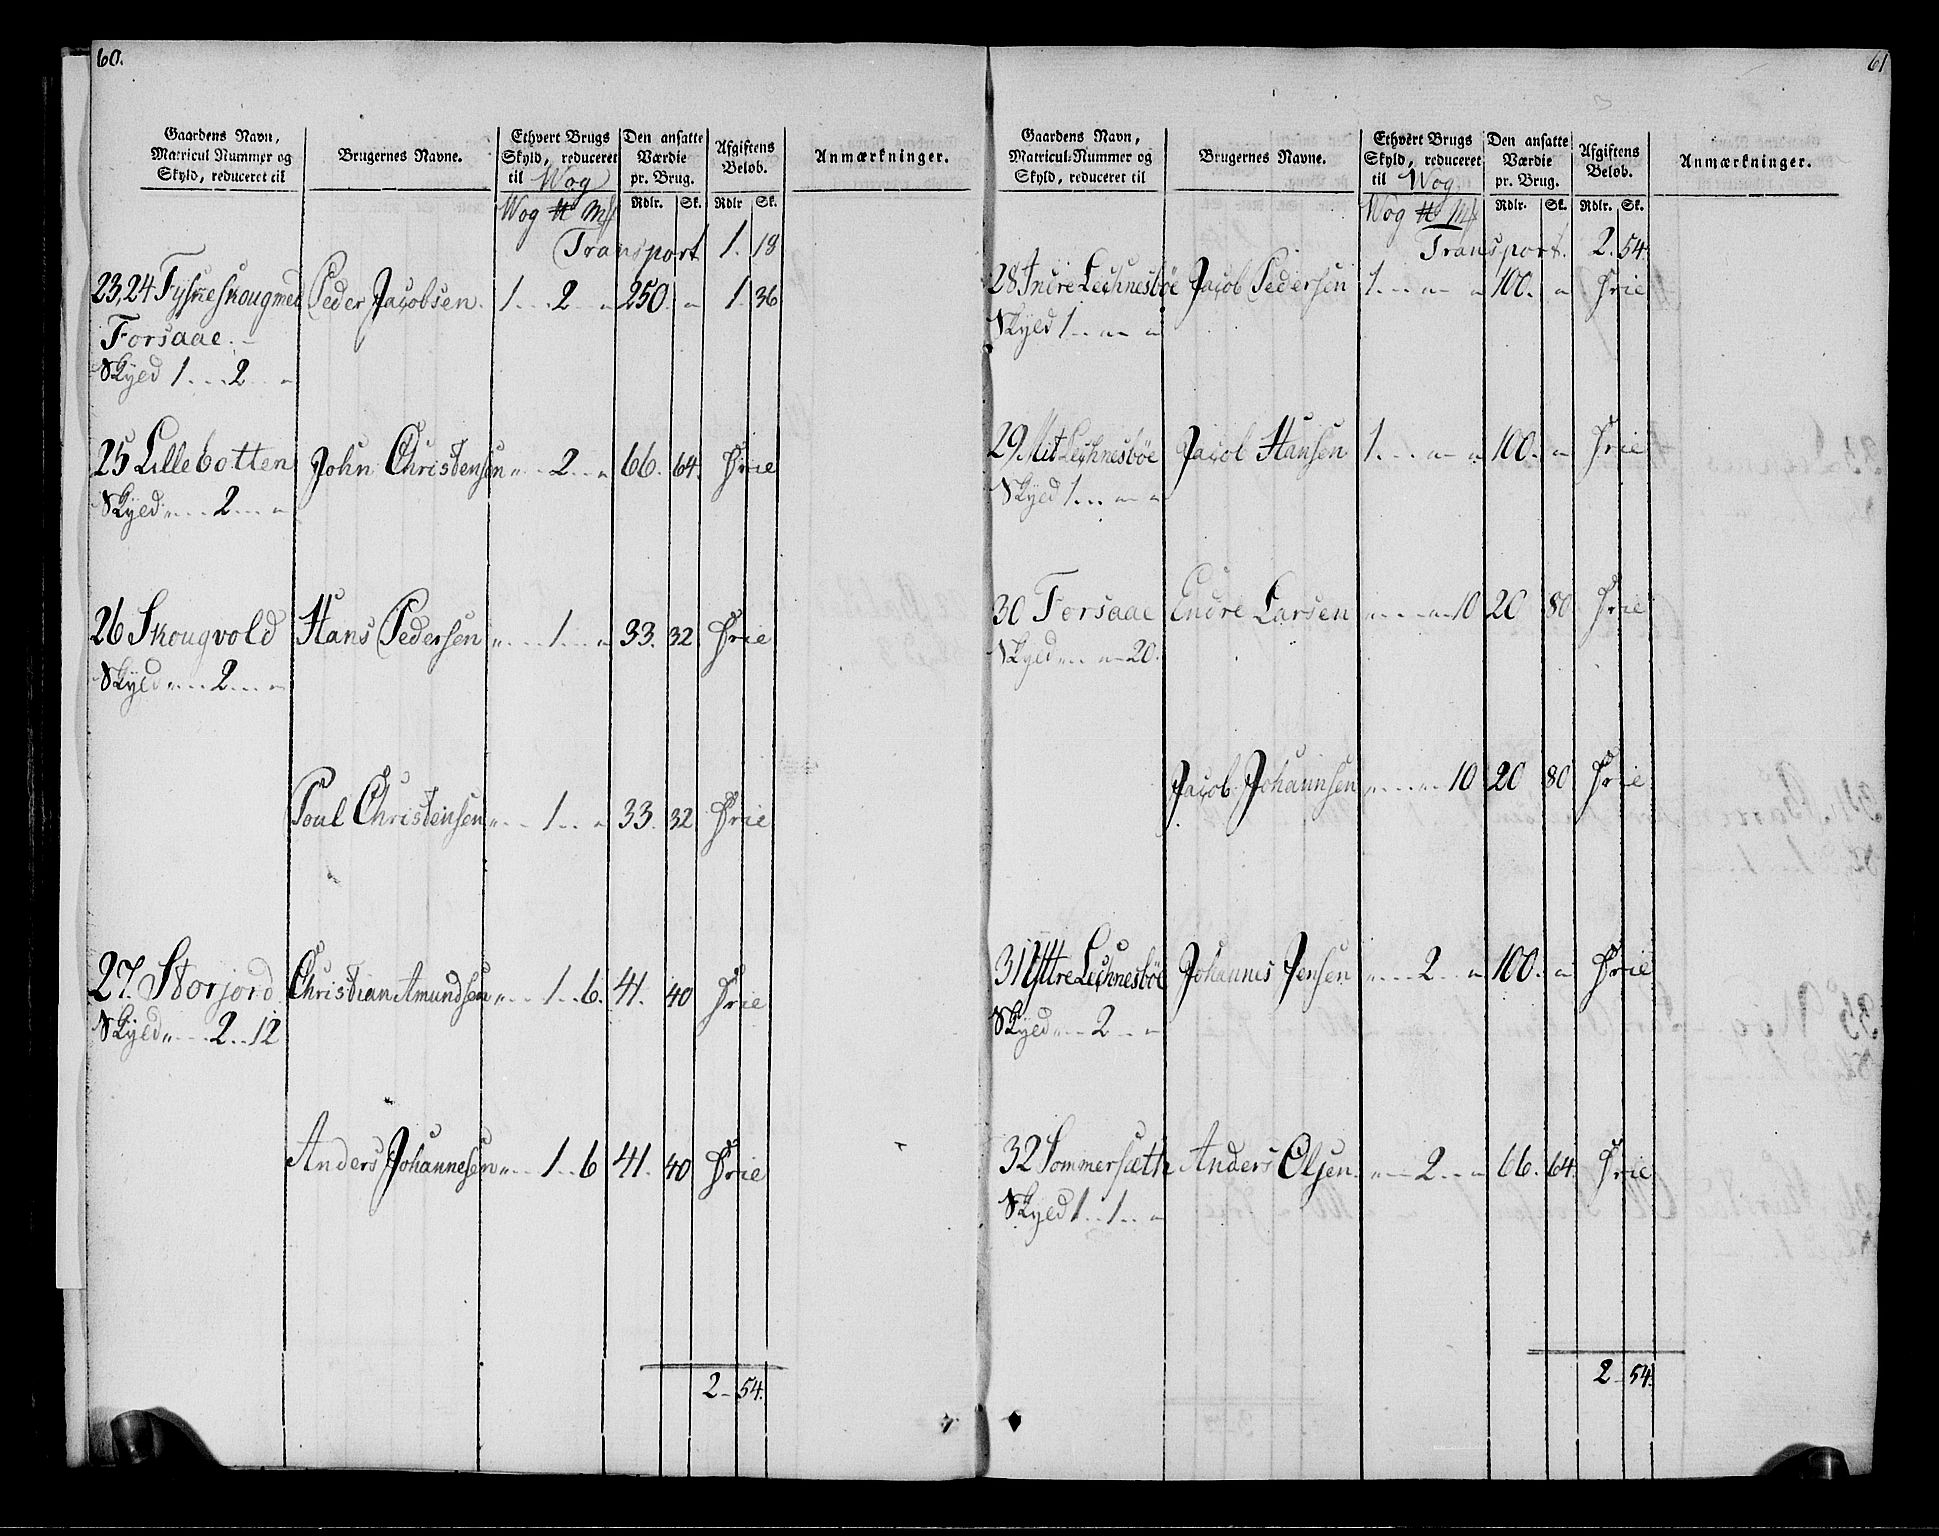 60.
Gaardens Navn, Matricul Nummer og Skyld, reduceret til
Brugernes Navne.
Ethvert Brugs Skyld, reduceret til Wog
Den ansatte Værdie pr. Brug.
Afgiftens Beløb.
Anmærkninger.
Wog ℔ Mk Rdlr. Sk. Rdlr Sk.
Transport 1. 18
23, 24 Fyskeskougmed Peder Jacobsen. 1 . . . 2 „ 250. „ 1. 36
Forsaae.
Skyld 1 . . . 2 . . „
25 Lillebotten John Christensen „ . . 2 . . „ 66. 64. Frie
Skyld „ . . . 2 . . . „
26 Skougvold Hans Pedersen „ . . . 1 . . . „ 33. 32 Frie
Skyld „ . . . 2 . . . „
Poul Christensen „ . . . 1 . . „ 33. 32 Frie
27. Storjord Christian Amundsen „ . . . 1 . . 6. 41. 40 Frie
Skyld „ . . . 2 . . 12
Anders Johannesen „ . . . 1 . . 6 41. 40 Frie
2 - 54.
61
Gaardens Navn, Matricul-Nummer og Skyld, reduceret til
Brugernes Navne.
Ethvert Brugs Skyld, reduceret til Wog
Den ansatte Værdie pr. Brug.
Afgiftens Beløb.
Anmærkninger.
Wog ℔ Mk Rdlr. Sk. Rdlr. Sk.
Transport. 2. 54.
28 Indre Lechnesböe Jacob Pedersen 1 . . . „ „ 100. „ Frie
Skyld 1 . . „ „
29 Mit Lechnesböe Jacob Hansen 1 . . . „ „ 100. „ Frie
Skyld 1 . . . „ „
30 Forsaae Endre Larsen „ . . . „ 10 20 80 Frie
Skyld „ . . „ 20.
Jacob Johannsen „ . . . „ 10 20 80 Frie
31 Yttre Lechnesböe Johannes Jensen „ . . . 2 . . „ 100. „ Frie
Skyld „ . . 2 . . „
32 Sommersæth Anders Olsen. „ . . 2 . . „ 66. 64. Frie
Skyld 1 . . 1 . . „
2 - 54.